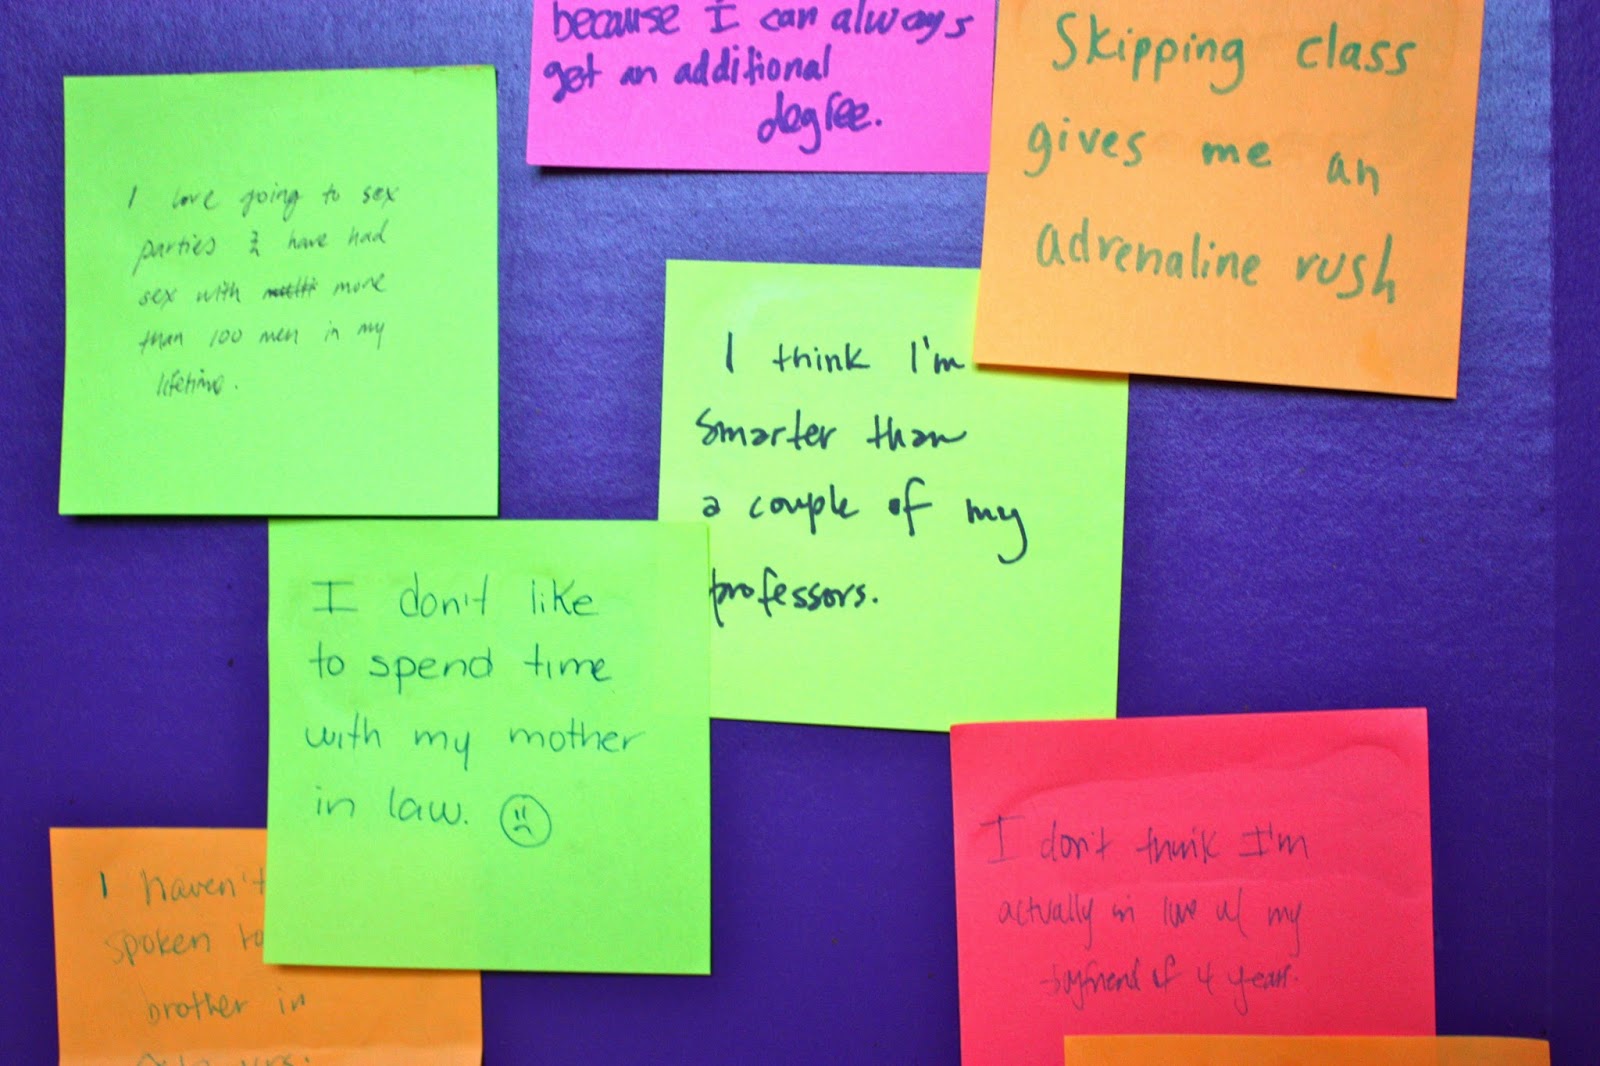 because I can always
get an additional
degree.
Skipping class
gives me an
adrenaline rush
I love going to sex
parties & have had
sex with more
than 100 men in my
lifetime.
I think I'm
smarter than
a couple of my
professors.
I don't like
to spend time
with my mother
in law.
I don't think I'm
actually in love w/ my
boyfriend of 4 years.
I haven't
spoken to
brother in
yrs.